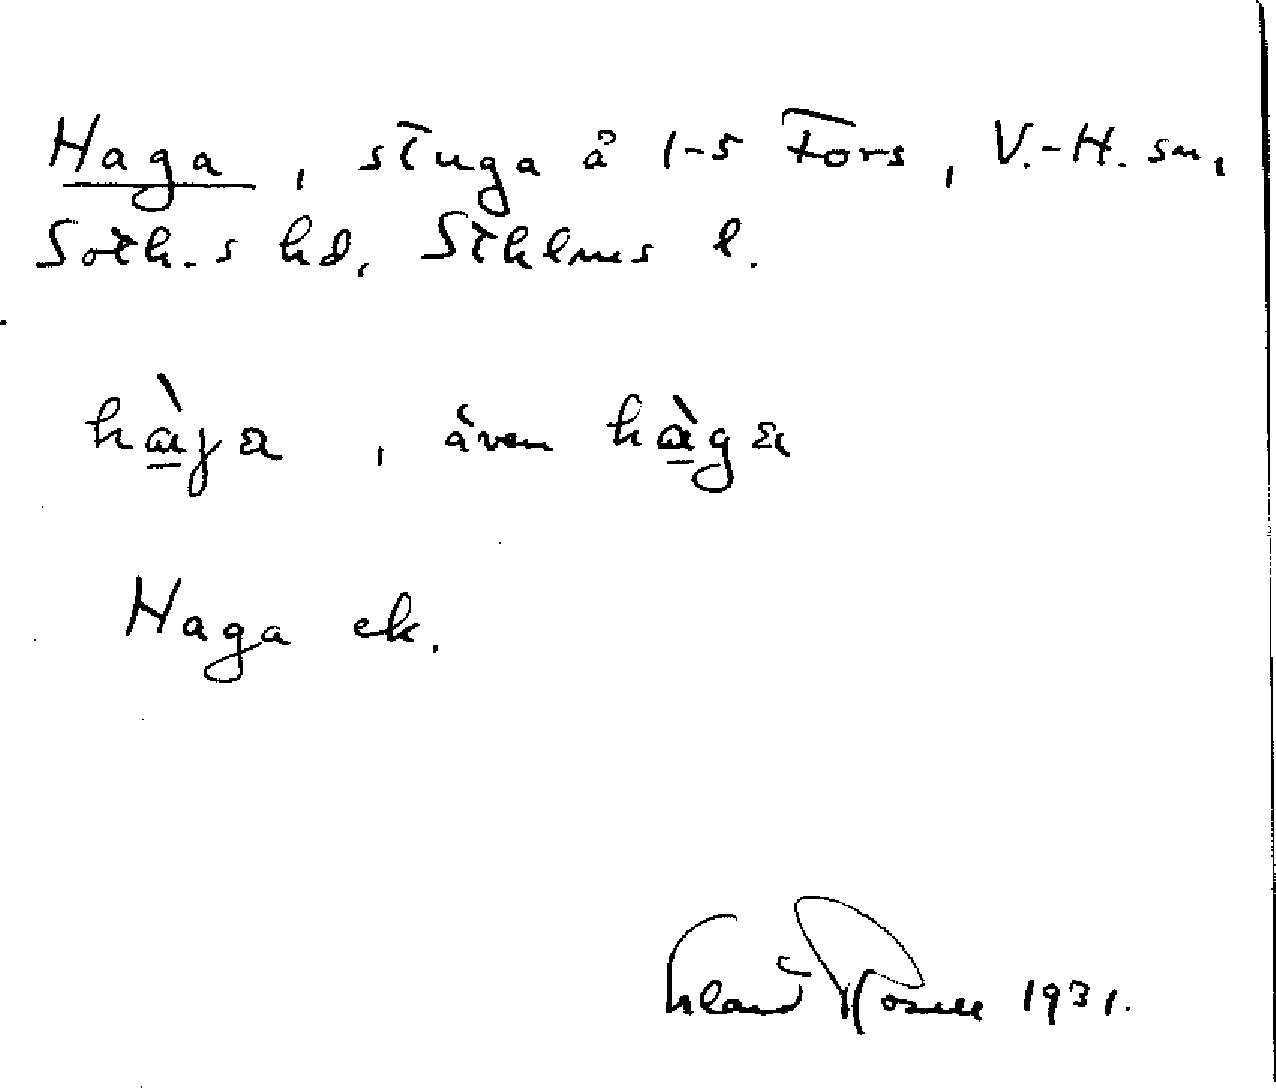 Haga, stuga å 1-5 Fors, V.-H. sn,
Soth.s hd, Sthlms l.
hàja, även hàga
Haga ek.
1931.